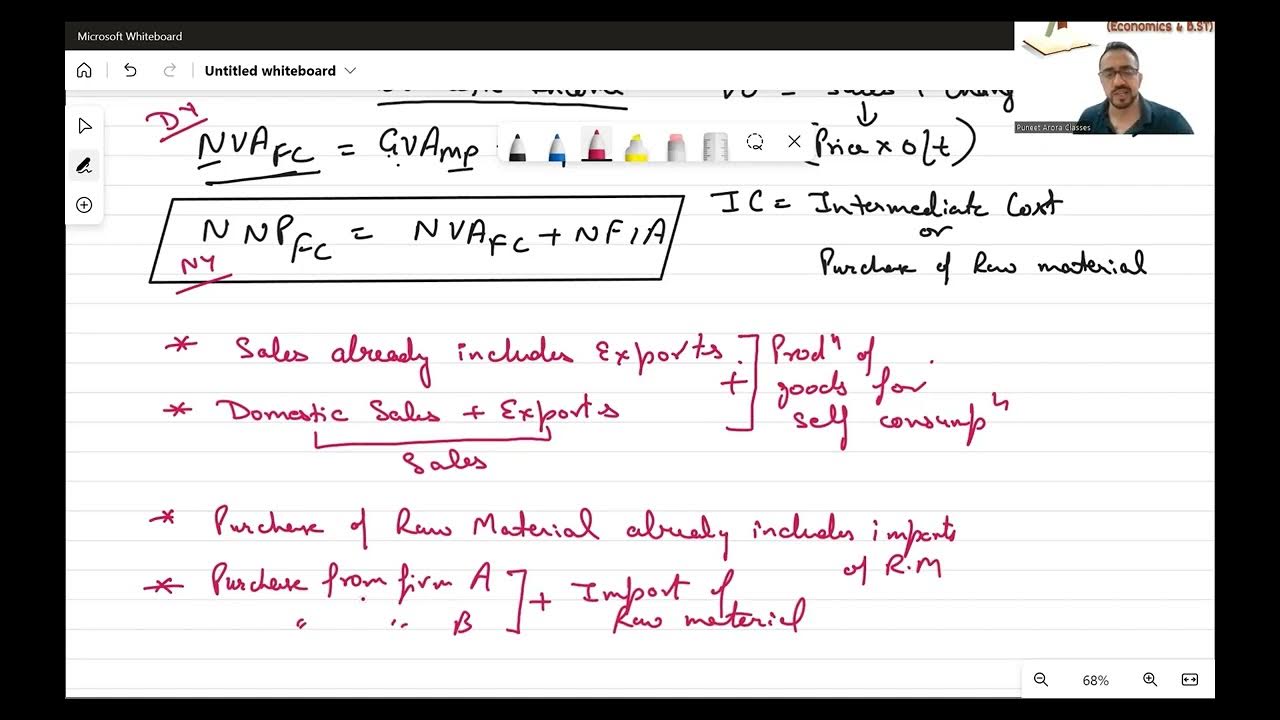 (Economics & B.ST)
Microsoft Whiteboard
Untitled whiteboard
Puneet Arora Classes
DY
NVA FC = GVA MP
(Price × O/t)
NNP FC = NVA FC + NFIA
NY
IC = Intermediate Cost
or
Purchase of Raw material
* Sales already includes Exports.
* Domestic Sales + Exports
Sales
+ Prodⁿ of
goods for
self consumpⁿ
* Purchase of Raw Material already includes imports
of R.M
* Purchase from firm A
" " B
+ Import of
Raw material
68%